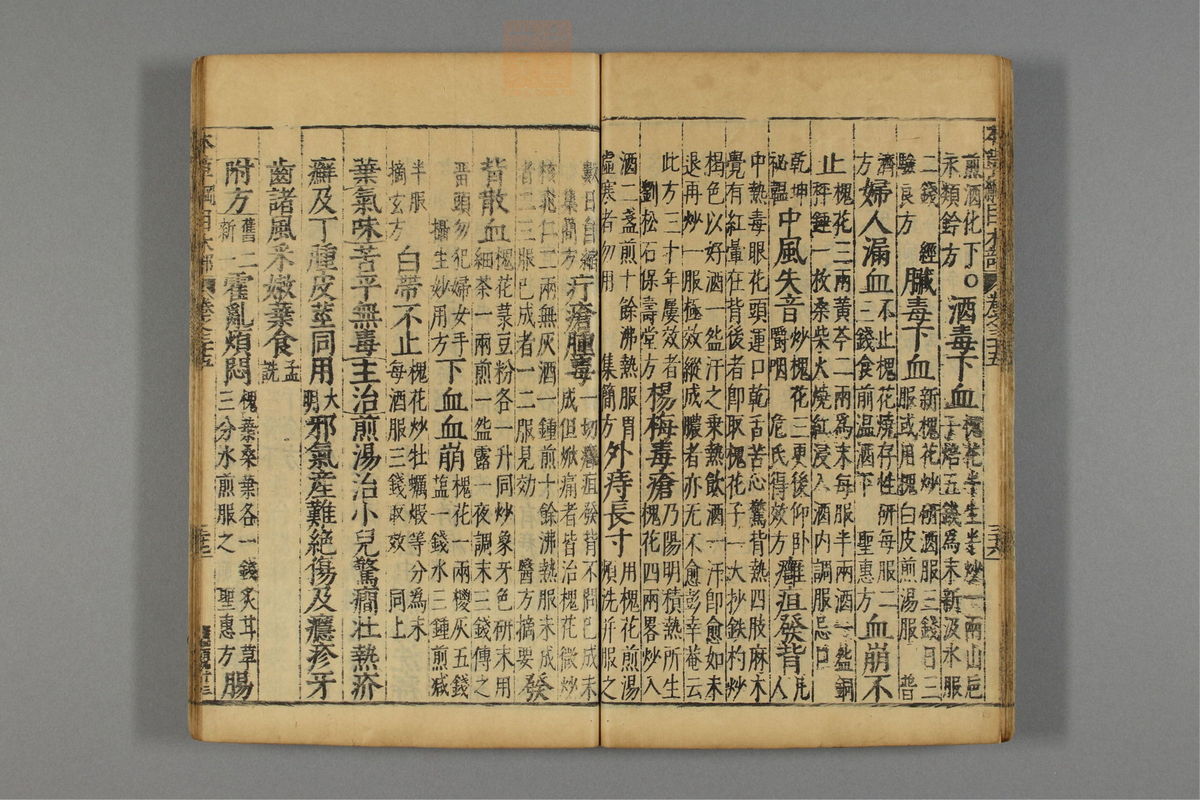 本草綱目木部 卷之三十五
煎酒化下。朱類鈐方 酒毒下血 槐花半生半炒一兩山梔子焙五錢為末新汲水服
二錢 經驗良方 臟毒下血 新槐花炒研酒服三錢日三服或用槐白皮煎湯服 普
濟方 婦人漏血 不止槐花燒存性研每服二三錢食前温酒下 聖惠方 血崩不
止 槐花三兩黃芩二兩為末每服半兩酒一盌銅秤錘一枚桑柴火燒紅浸入酒内調服忌口
乾坤祕韞 中風失音 炒槐花三更後仰卧嚼咽 危氏得效方 癰疽發背 凡人
中熱毒眼花頭運口乾舌苦心驚背熱四肢麻木覺有紅暈在背後者卽取槐花子一大抄鐵杓炒
褐色以好酒一盌汗之乘熱飲酒一汗卽愈如未退再炒一服極效縱成膿者亦无不愈彭幸菴云
此方三十年屢效者 劉松石保壽堂方 楊梅毒瘡 乃陽明積熱所生槐花四兩畧炒入
酒二盞煎十餘沸熱服胃虛寒者勿用 集簡方 外痔長寸 用槐花煎湯頻洗并服之
數日自縮 集簡方 疔瘡腫毒 一切癰疽發背不問已成未成但焮痛者皆治槐花微炒
核桃仁二兩無灰酒一鍾煎十餘沸熱服未成者二三服已成者一二服見効 醫方摘要 發
背散血 槐花菉豆粉各一升同炒象牙色研末用細茶一兩煎一盌露一夜調末三錢傅之
留頭勿犯婦女手 攝生妙用方 下血血崩 槐花一兩椶灰五錢鹽一錢水三鍾煎减
半服 摘玄方 白帶不止 槐花炒牡蠣煅等分為末每酒服三錢取效 同上
葉氣味苦平無毒主治煎湯治小兒驚癇壯熱疥
癬及丁腫皮莖同用 大明 邪氣產難絶傷及癮疹牙
齒諸風采嫩葉食 孟詵
附方 舊二新一 霍亂煩悶 槐葉桑葉各一錢炙甘草三分水煎服之 聖惠方 腸
本草綱目木部 卷之三十五